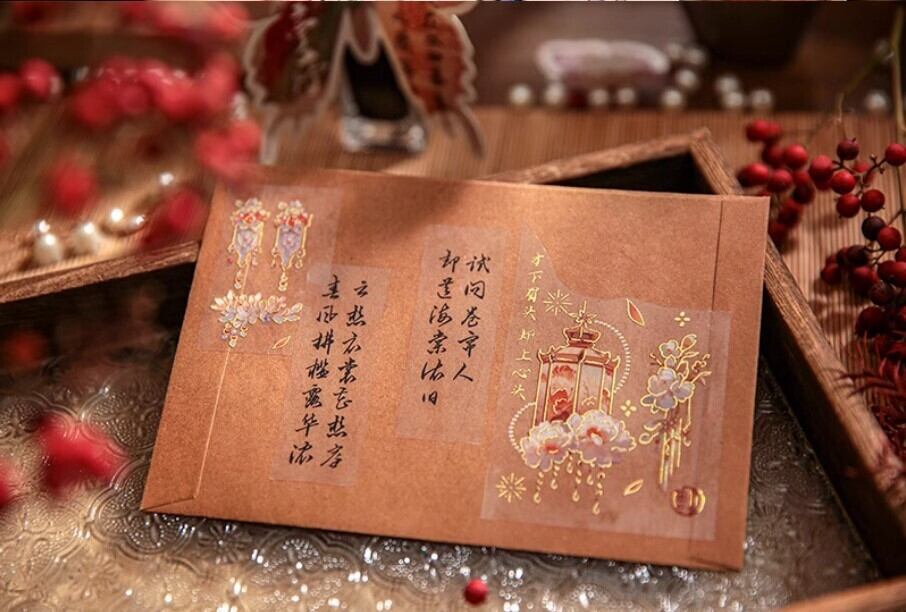 才下眉头却上心头
试问卷帘人
却道海棠依旧
云想衣裳花想容
春风拂槛露华浓